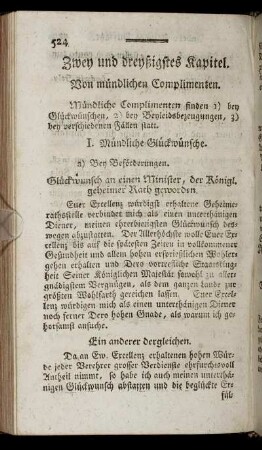 524
Zwey und dreyßigstes Kapitel.
Von mündlichen Complimenten.
Mündliche Complimenten finden 1) bey
Glückwünschen, 2) bey Beyleidsbezeugungen, 3)
bey verschiedenen Fällen statt.
I. Mündliche Glückwünsche.
a) Bey Beförderungen.
Glückwunsch an einen Minister, der Königl.
geheimer Rath geworden.
Euer Excellenz würdigst erhaltene Geheime-
rathsstelle verbindet mich als einen unterthänigen
Diener, meinen ehrerbietigsten Glückwunsch des-
wegen abzustatten. Der Allerhöchste wolle Euer Ex-
cellenz bis auf die spätesten Zeiten in vollkommener
Gesundheit und allem hohen ersprießlichen Wohler-
gehen erhalten und Dero vortreffliche
Seiner Königlichen Majestät sowohl zu aller-
gnädigstem Vergnügen, als dem ganzen Lande zur
größten Wohlfarth gereichen lassen. Eure Excel-
lenz würdigen mich als einen unterthänigen Diener
noch ferner Dero hohen Gnade, als warum ich ge-
horsamst ansuche.
Ein anderer dergleichen.
Da an Ew. Excellenz erhaltenen hohen Wür-
de jeder Verehrer grosser Verdienste ehrfurchtsvoll
Antheil nimmt, so habe ich auch meinen unterthä-
nigen Glückwunsch abstatten und die beglückte Er-
fül-